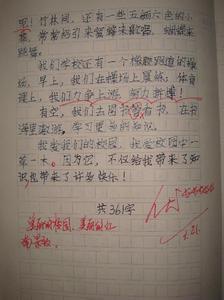 里！竹林间，还有一些五颜六色的小
花，常常招引来蜜蜂来歌唱，蝴蝶来
跳舞。
我们学校还有一个橡胶跑道的操
场。早上，我们在操场上晨练；体育
课上，我们力争上游，努力拼搏！
有空，我们去图书馆看书，在书
海里遨游，学习更多的知识。
我爱我们的校园，我爱校园中一
草一木。因为它，不仅给我带来了知
识也带来了许多快乐！
共361字
美丽的校园，美丽的